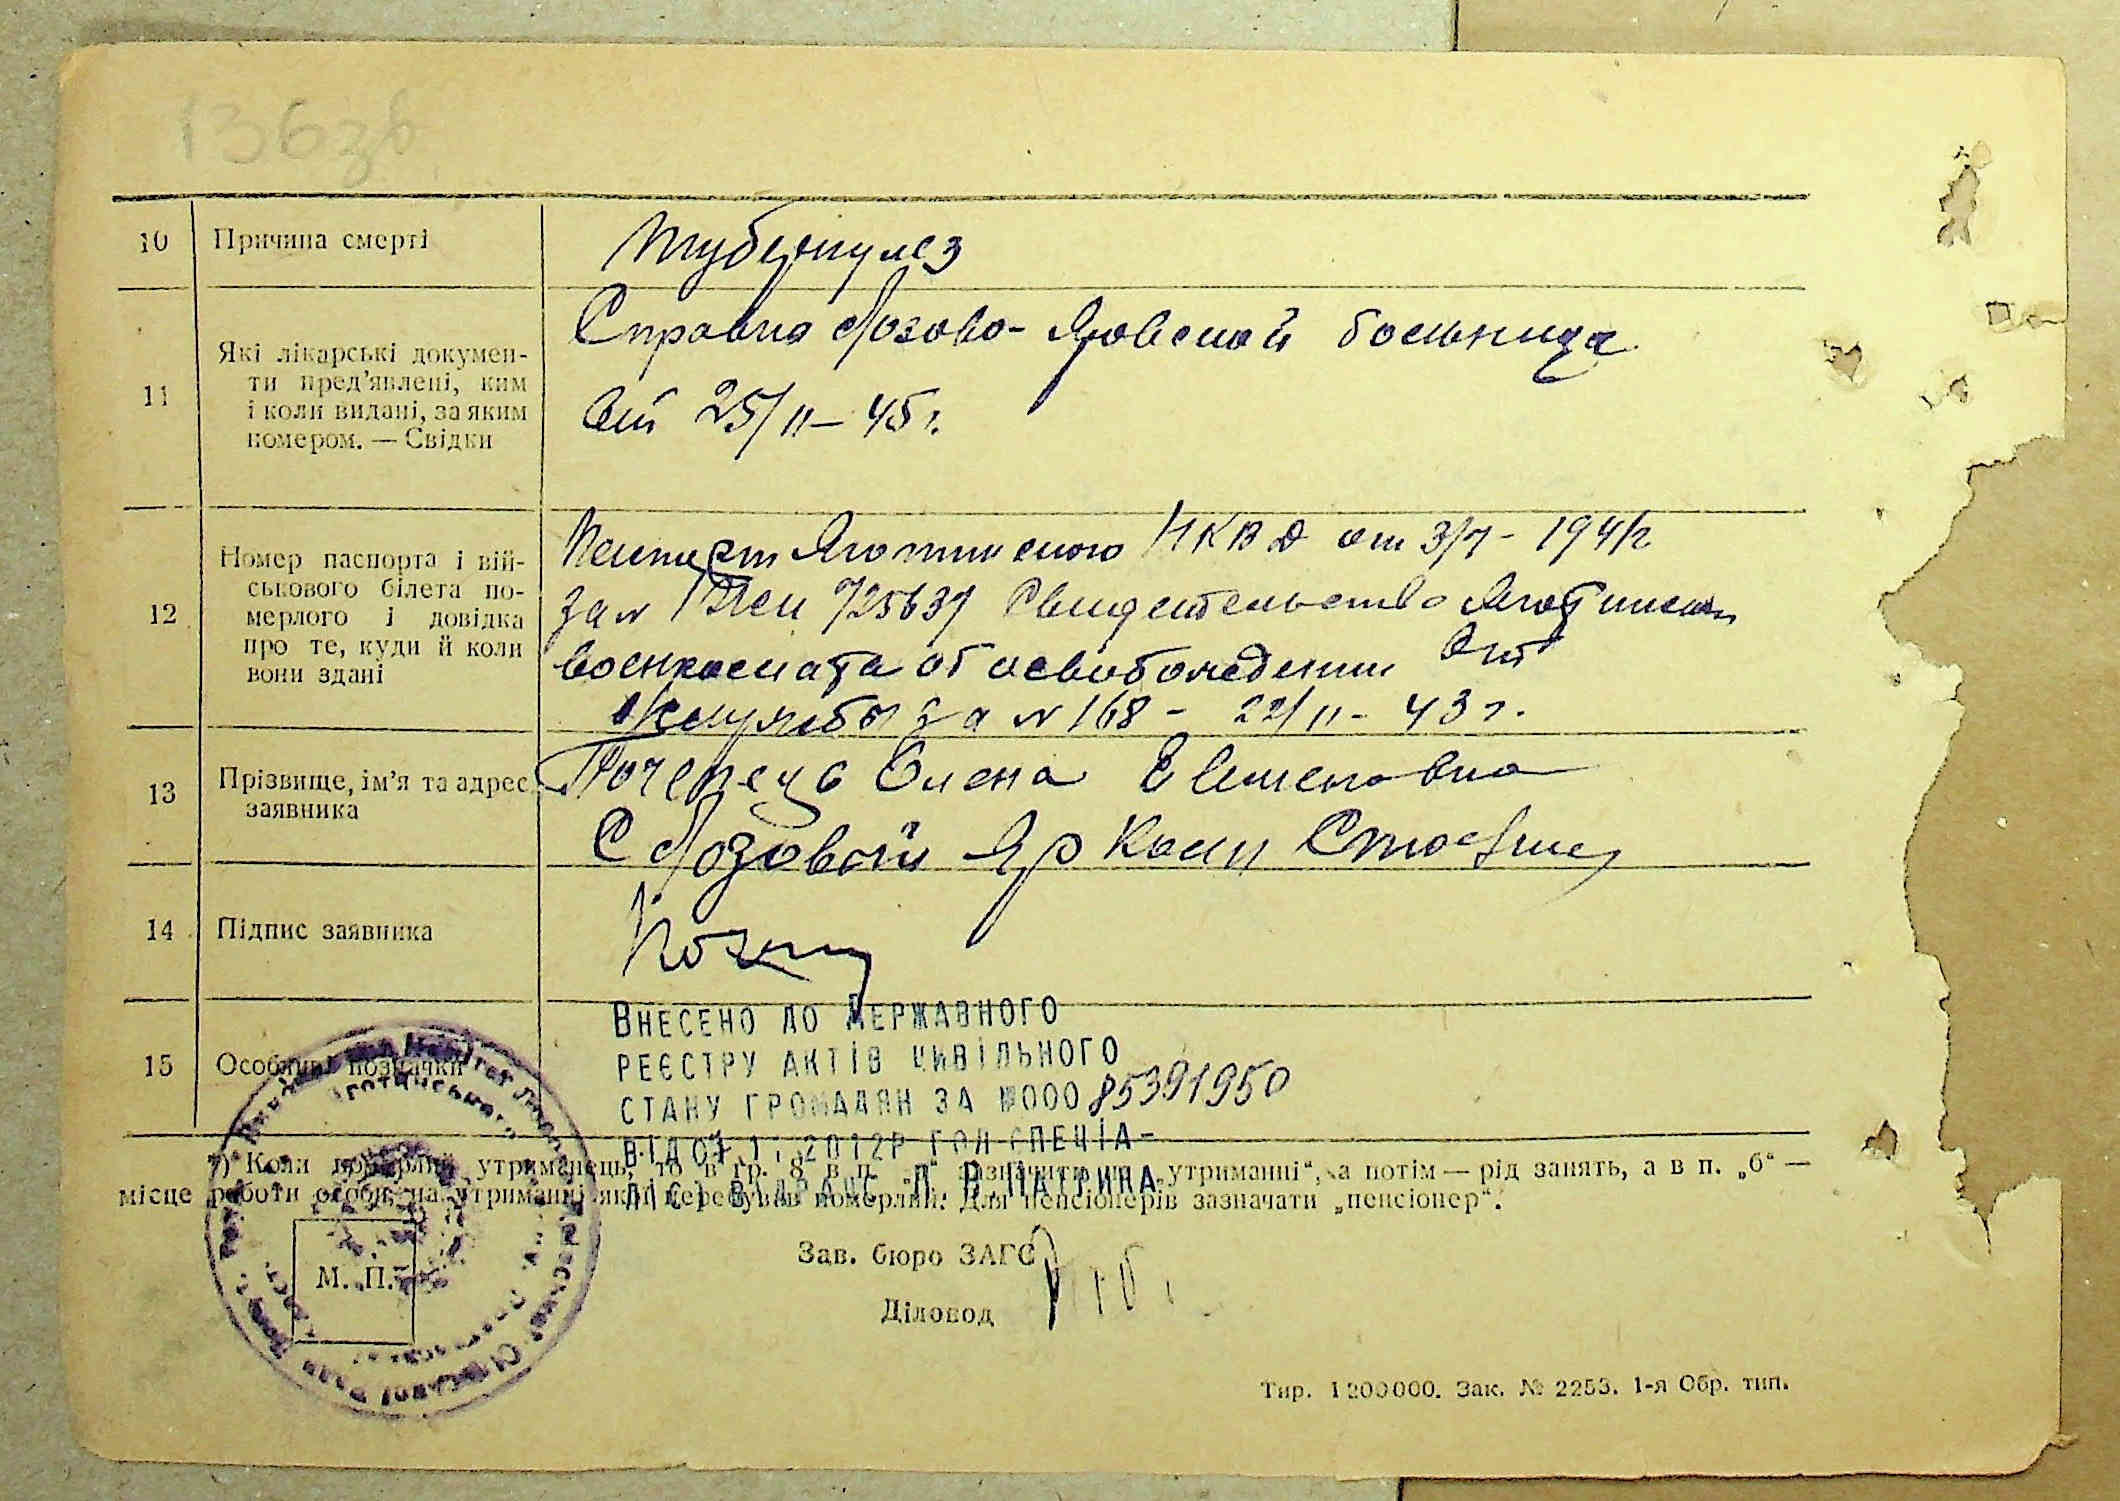 136зв
10 Причина смерті
Туберкулез
11 Які лікарські докумен-
ти пред'явлені, ким
і коли видані, за яким
номером. — Свідки
Справка Лозово-Яровской больница
от 25/II-45 г.
12 Номер паспорта і вій-
ськового білета по-
мерлого і довідка
про те, куди й коли
вони здані
Паспорт Яготинского НКВД от 3/7-1941г
за № 725637 Свидетельство Яготинск
военкомата об освобождении от
за № 168 - 22/II-43 г.
13 Прізвище, ім'я та адрес
заявника
Олена
С Лозовой Яр
14 Підпис заявника
15 Особливі позначки
Внесено до Державного
реєстру актів цивільного
стану громадян за №000 85391950
2012р гол спеціа-
В. Патрина
*) Коли померлий утриманець, то в гр. 8 в п. зазначити утриманні", а потім — рід занять, а в п. „б" —
місце роботи особи, на утриманні якої перебував померлий. Для пенсіонерів зазначати „пенсіонер".
Зав. бюро ЗАГС
М. П.
Діловод
Тир. 1200000. Зак. № 2253. 1-я Обр. тип.